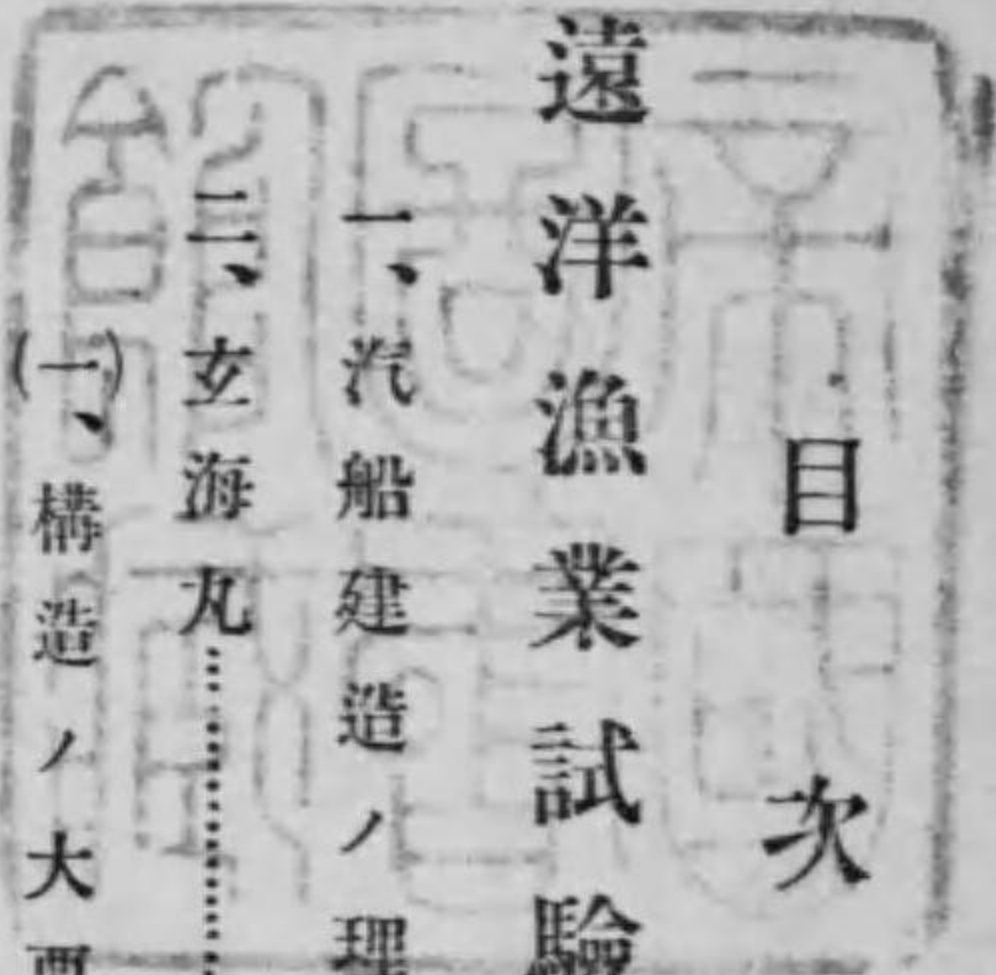 目次
遠洋漁業試驗
一、汽船建造ノ理
二、玄海丸………
(一)、構造ノ大要